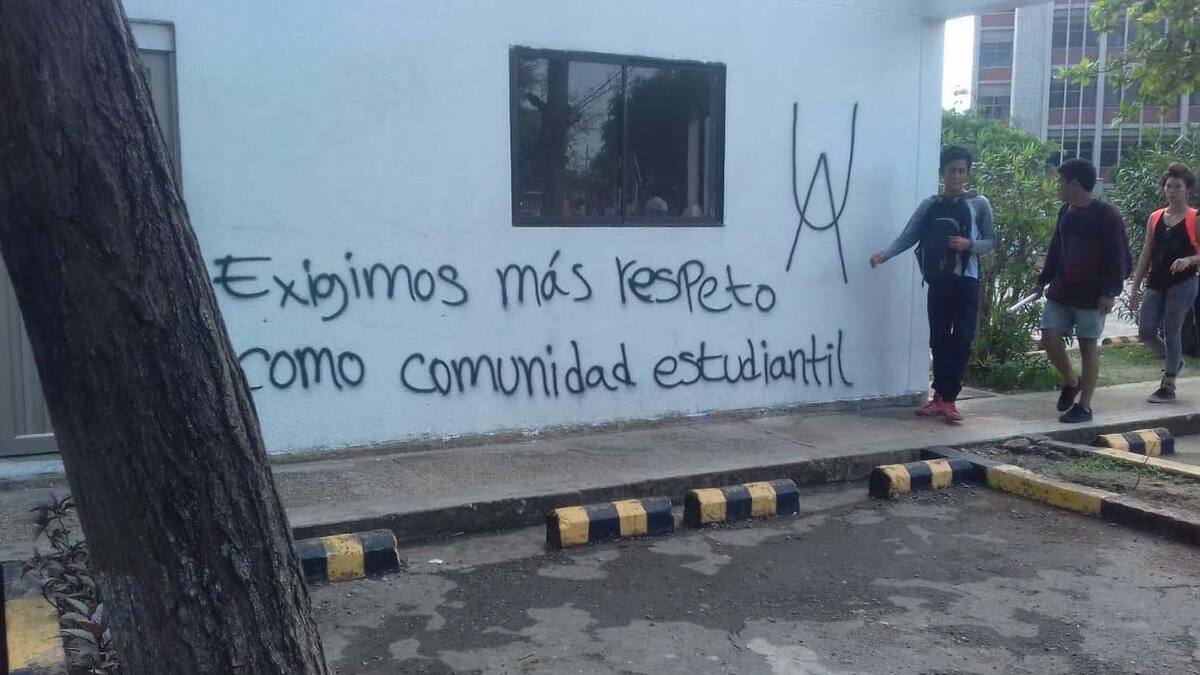 Exigimos más respeto
como comunidad estudiantil
UA